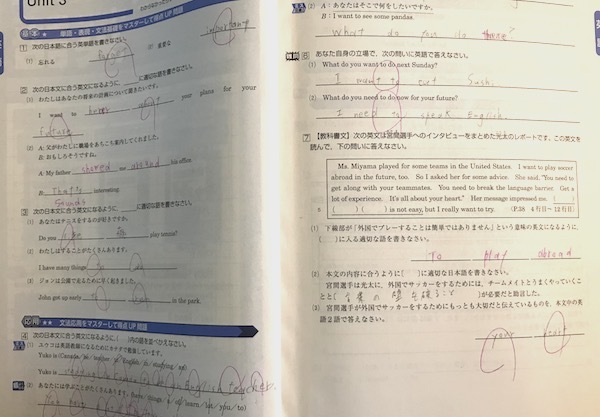 Unit 3
基本 ★ 単語・表現・文法基礎をマスターして得点UP問題
1 次の日本語に合う英単語を書きなさい。
(1) 忘れる forget (2) 重要な important
2 次の日本文に合う英文になるように に適切な語を書きなさい。
(1) わたしはあなたの将来の計画について聞きたいです。
I want to hear your plans for your
future
(2) A: 父がわたしに職場をあちこち案内してくれました。
B: おもしろそうですね。
A: My father showed me around his office.
B: interesting.
Sounds
3 次の日本文に合う英文になるように に適切な語を書きなさい。
(1) あなたはテニスをするのが好きですか。
Do you like play tennis?
(2) わたしはすることがたくさんあります。
I have many things to
(3) ジョンは公園で走るために早く起きました。
John got up early to in the park.
応用 ★★ 文法応用をマスターして得点UP問題
4 次の日本文に合う英文になるように( )内の語を並べかえなさい。
(1) ユウコは英語教師になるためにカナダで勉強しています。
Yuko is (Canada, to teacher English in studying an)
Yuko is English teacher.
(2) あなたは学ぶことがたくさんあります。(have / things / of / learn / lot / you / to)
(2) A: あなたはそこで何をしたいですか。
B: I want to see some pandas.
What do you do there?
6 あなた自身の立場で、次の問いに英語で答えなさい。
(1) What do you want to do next Sunday?
I want to eat Sushi.
(2) What do you need to do now for your future?
I need to speak English.
7 【教科書文】次の英文は宮間選手へのインタビューをまとめた光太のレポートです。この英文を
読んで、下の問いに答えなさい。
Ms. Miyama played for some teams in the United States. I want to play soccer
abroad in the future, too. So I asked her for some advice. She said, "You need to
get along with your teammates. You need to break the language barrier. Get a
lot of experience. It's all about your heart." Her message impressed me. ( )
5 ( )( ) is not easy, but I really want to try. (P.38 4行目～12行目)
(1) 下線部が「外国でプレーすることは簡単ではありません」という意味の英文になるように
( )に入る適切な語を書きなさい。
To play abroad
(2) 本文の内容に合うように( )に適切な日本語を書きなさい。
宮間選手は光太に、外国でサッカーをするためには、チームメイトとうまくやっていくこ
とと(言葉の壁を破ること)が必要だと助言した。
(3) 宮間選手が外国でサッカーをするためにもっとも大切だと伝えているものを、本文中の英
語2語で答えなさい。
your heart